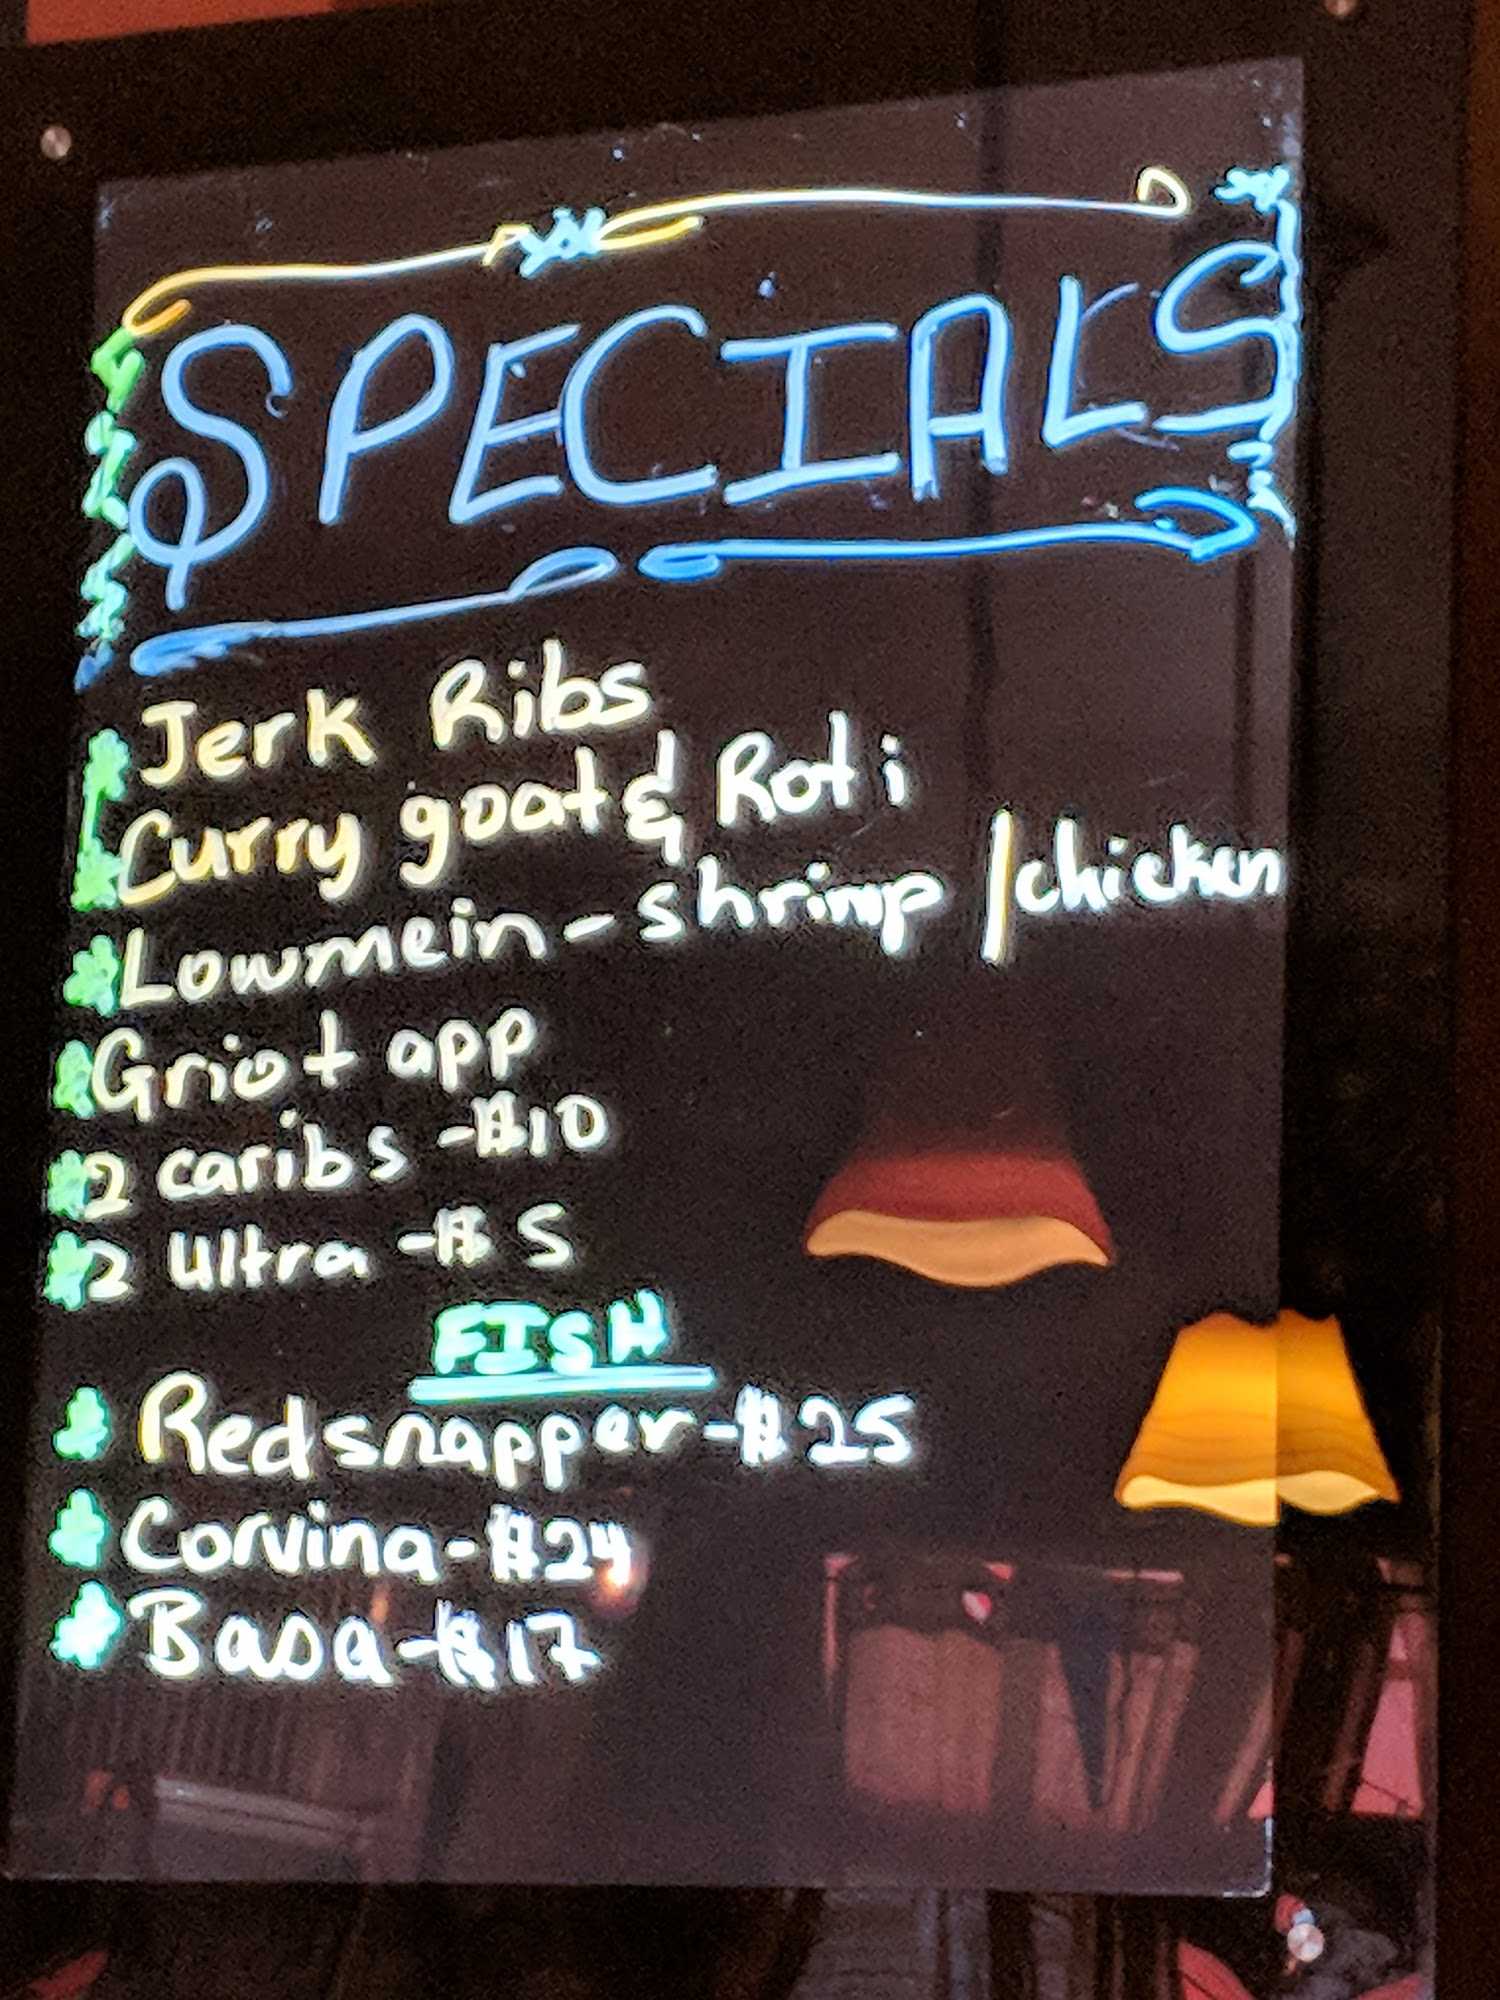 SPECIALS
Jerk Ribs
Curry goat & Roti
Lowmein - shrimp / chicken
Griot app
2 caribs - $10
2 Ultra - $5
FISH
Red snapper - $25
Corvina - $24
Basa - $17